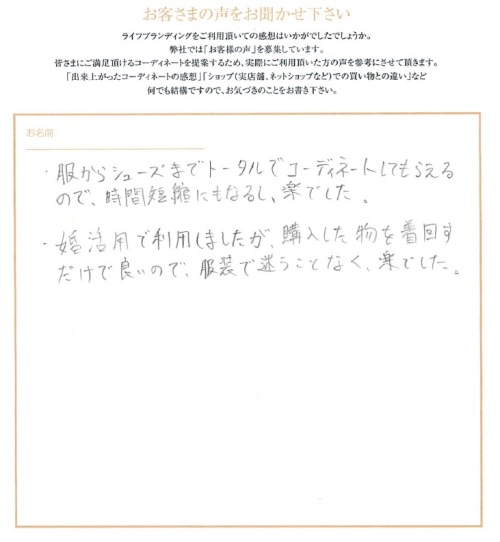 お客さまの声をお聞かせ下さい
ライフブランディングをご利用頂いての感想はいかがでしたでしょうか。
弊社では「お客様の声」を募集しています。
皆さまにご満足頂けるコーディネートを提案するため、実際にご利用頂いた方の声を参考にさせて頂きます。
「出来上がったコーディネートの感想」「ショップ（実店舗、ネットショップなど）での買い物との違い」など
何でも結構ですので、お気づきのことをお書き下さい。
お名前
・服からシューズまでトータルでコーディネートしてもらえる
ので、時間短縮にもなるし、楽でした。
・婚活用で利用しましたが、購入した物を着回す
だけで良いので、服装で迷うことなく、楽でした。